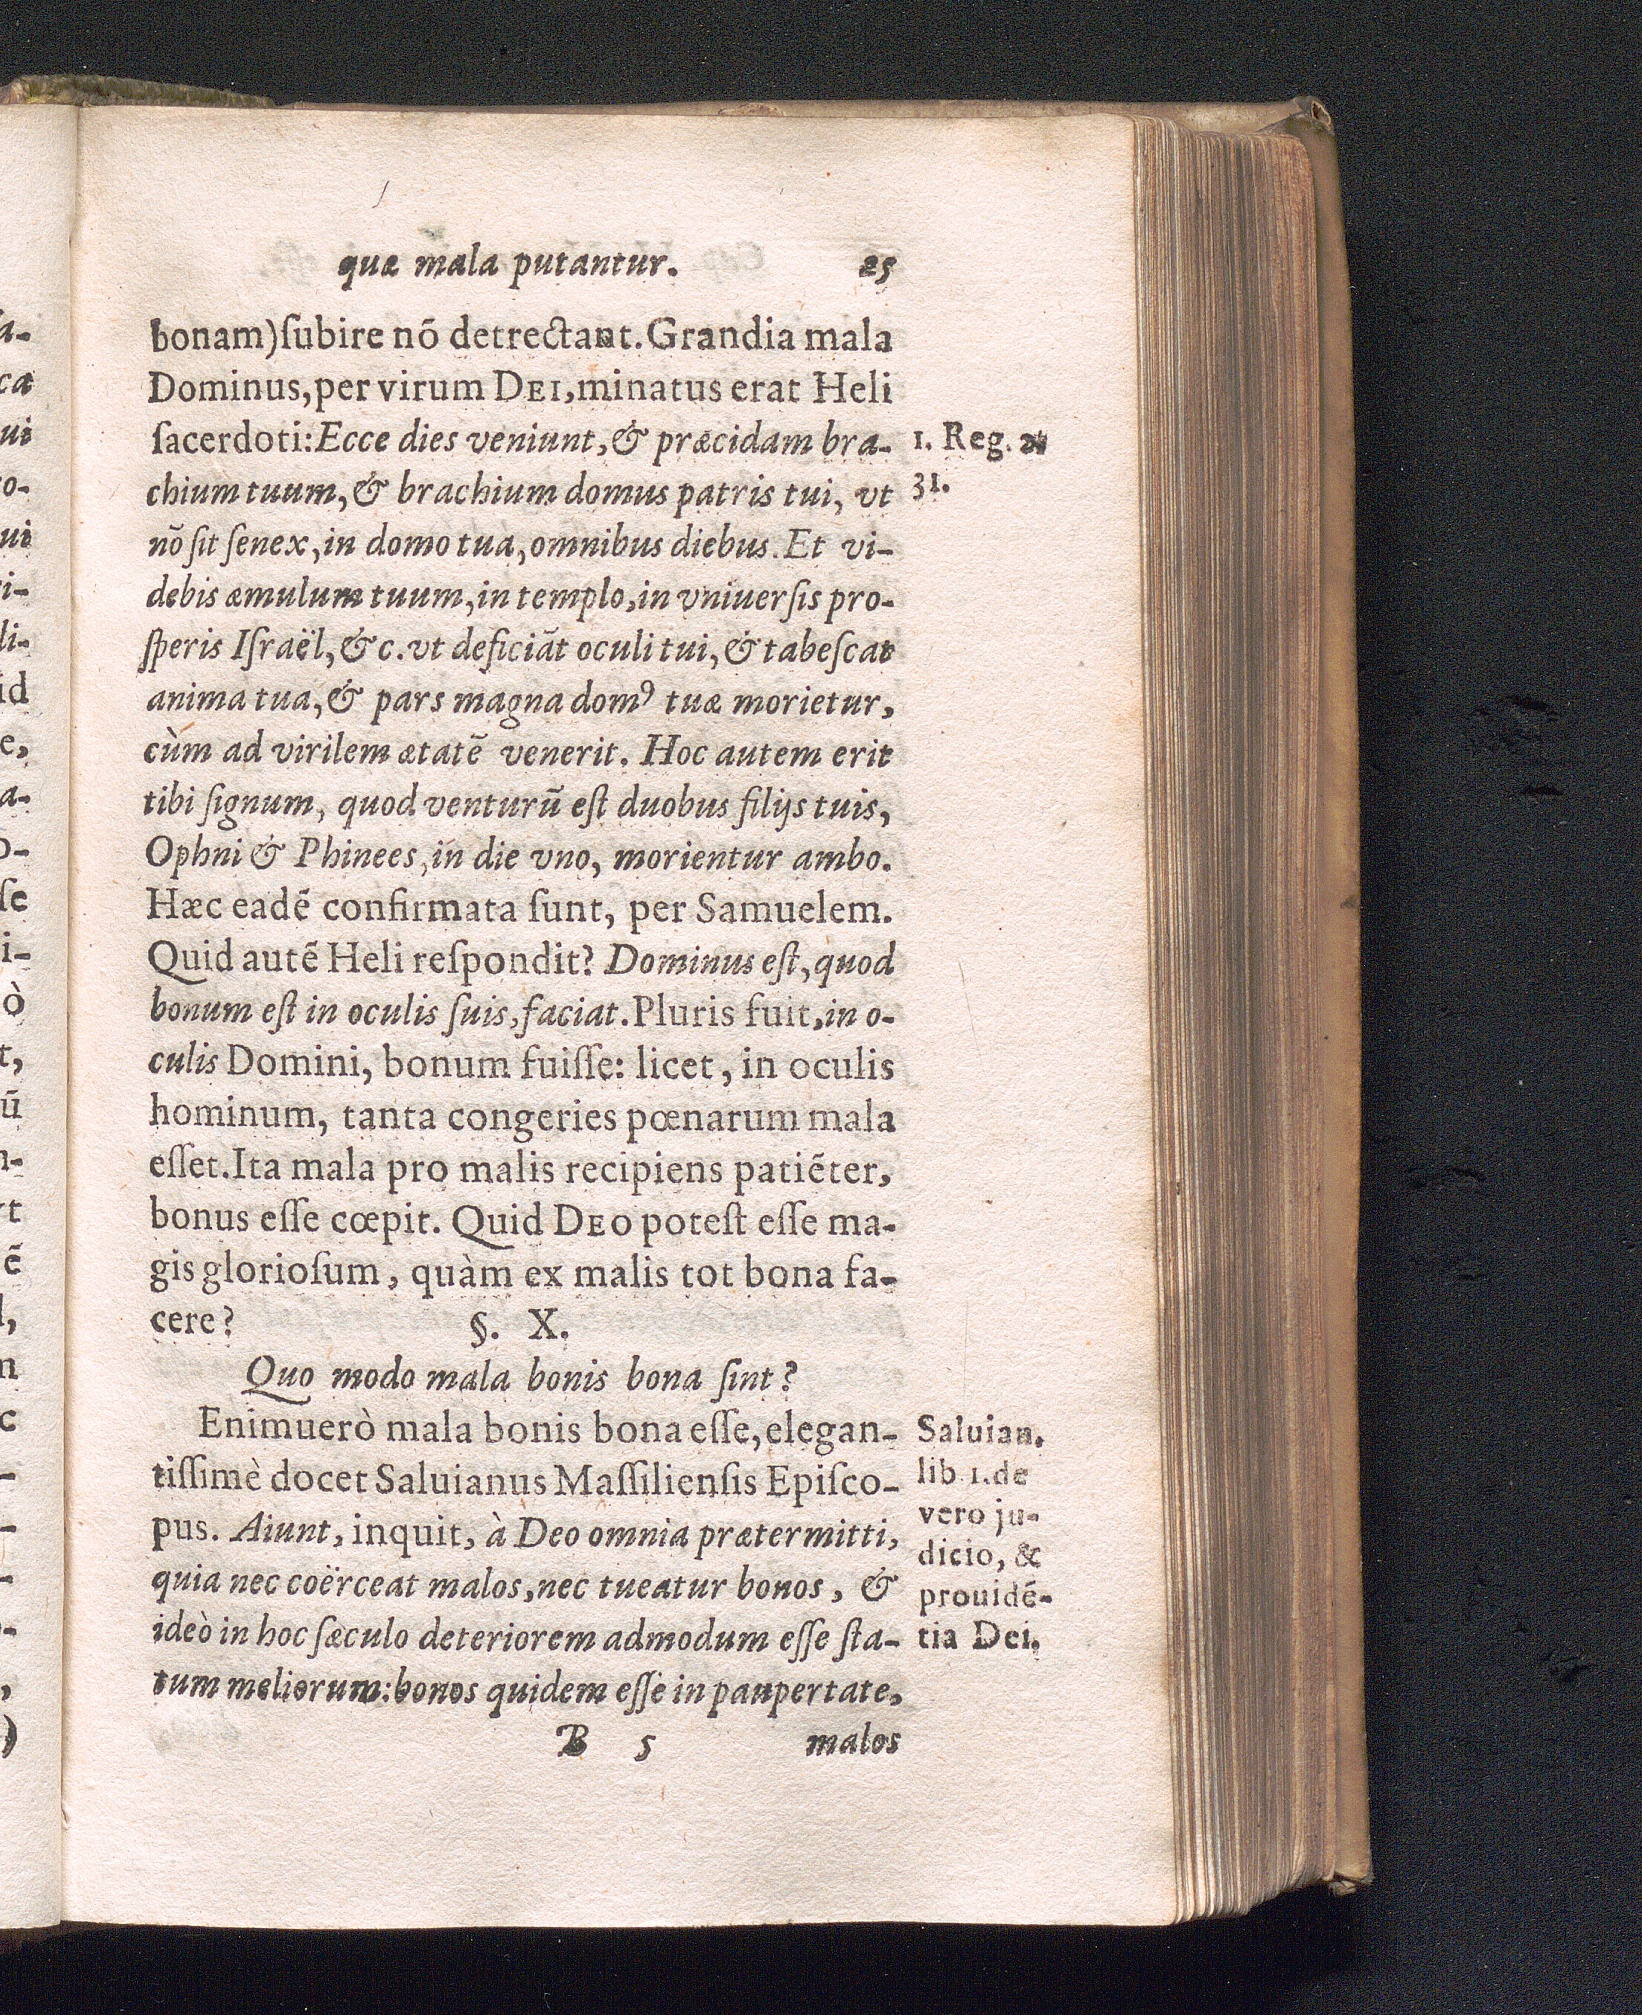 quæ mala putantur. 25
bonam)ſubire nõ detrectant. Grandia mala
Dominus, per virum DEI, minatus erat Heli
ſacerdoti: Ecce dies veniunt, & præcidam bra-
chium tuum, & brachium domus patris tui, vt
nõ ſit ſenex, in domo tua, omnibus diebus. Et vi-
debis æmulum tuum, in templo, in vniuerſis pro-
ſperis Iſraël, &c. vt deficiãt oculi tui, & tabeſcat
anima tua, & pars magna domꝰ tuæ morietur,
cùm ad virilem ætatẽ venerit. Hoc autem erit
tibi ſignum, quod venturũ eſt duobus filijs tuis,
Ophni & Phinees, in die vno, morientur ambo.
Hæc eadẽ confirmata ſunt, per Samuelem.
Quid autẽ Heli reſpondit? Dominus eſt, quod
bonum eſt in oculis ſuis, faciat. Pluris fuit, in o-
culis Domini, bonum fuiſſe: licet, in oculis
hominum, tanta congeries pœnarum mala
eſſet. Ita mala pro malis recipiens patiẽter,
bonus eſſe cœpit. Quid DEO poteſt eſſe ma-
gis glorioſum, quàm ex malis tot bona fa-
cere? §. X.
Quo modo mala bonis bona ſint?
Enimuerò mala bonis bona eſſe, elegan-
tiſſimè docet Saluianus Maſſilienſis Epiſco-
pus. Aiunt, inquit, à Deo omnia prætermitti,
quia nec coërceat malos, nec tueatur bonos, &
ideò in hoc ſæculo deteriorem admodum eſſe ſta-
tum meliorum: bonos quidem eſſe in paupertate,
B 5 malos
1. Reg.
31.
Saluian.
lib. 1. de
vero ju-
dicio, &
prouidẽ-
tia Dei.